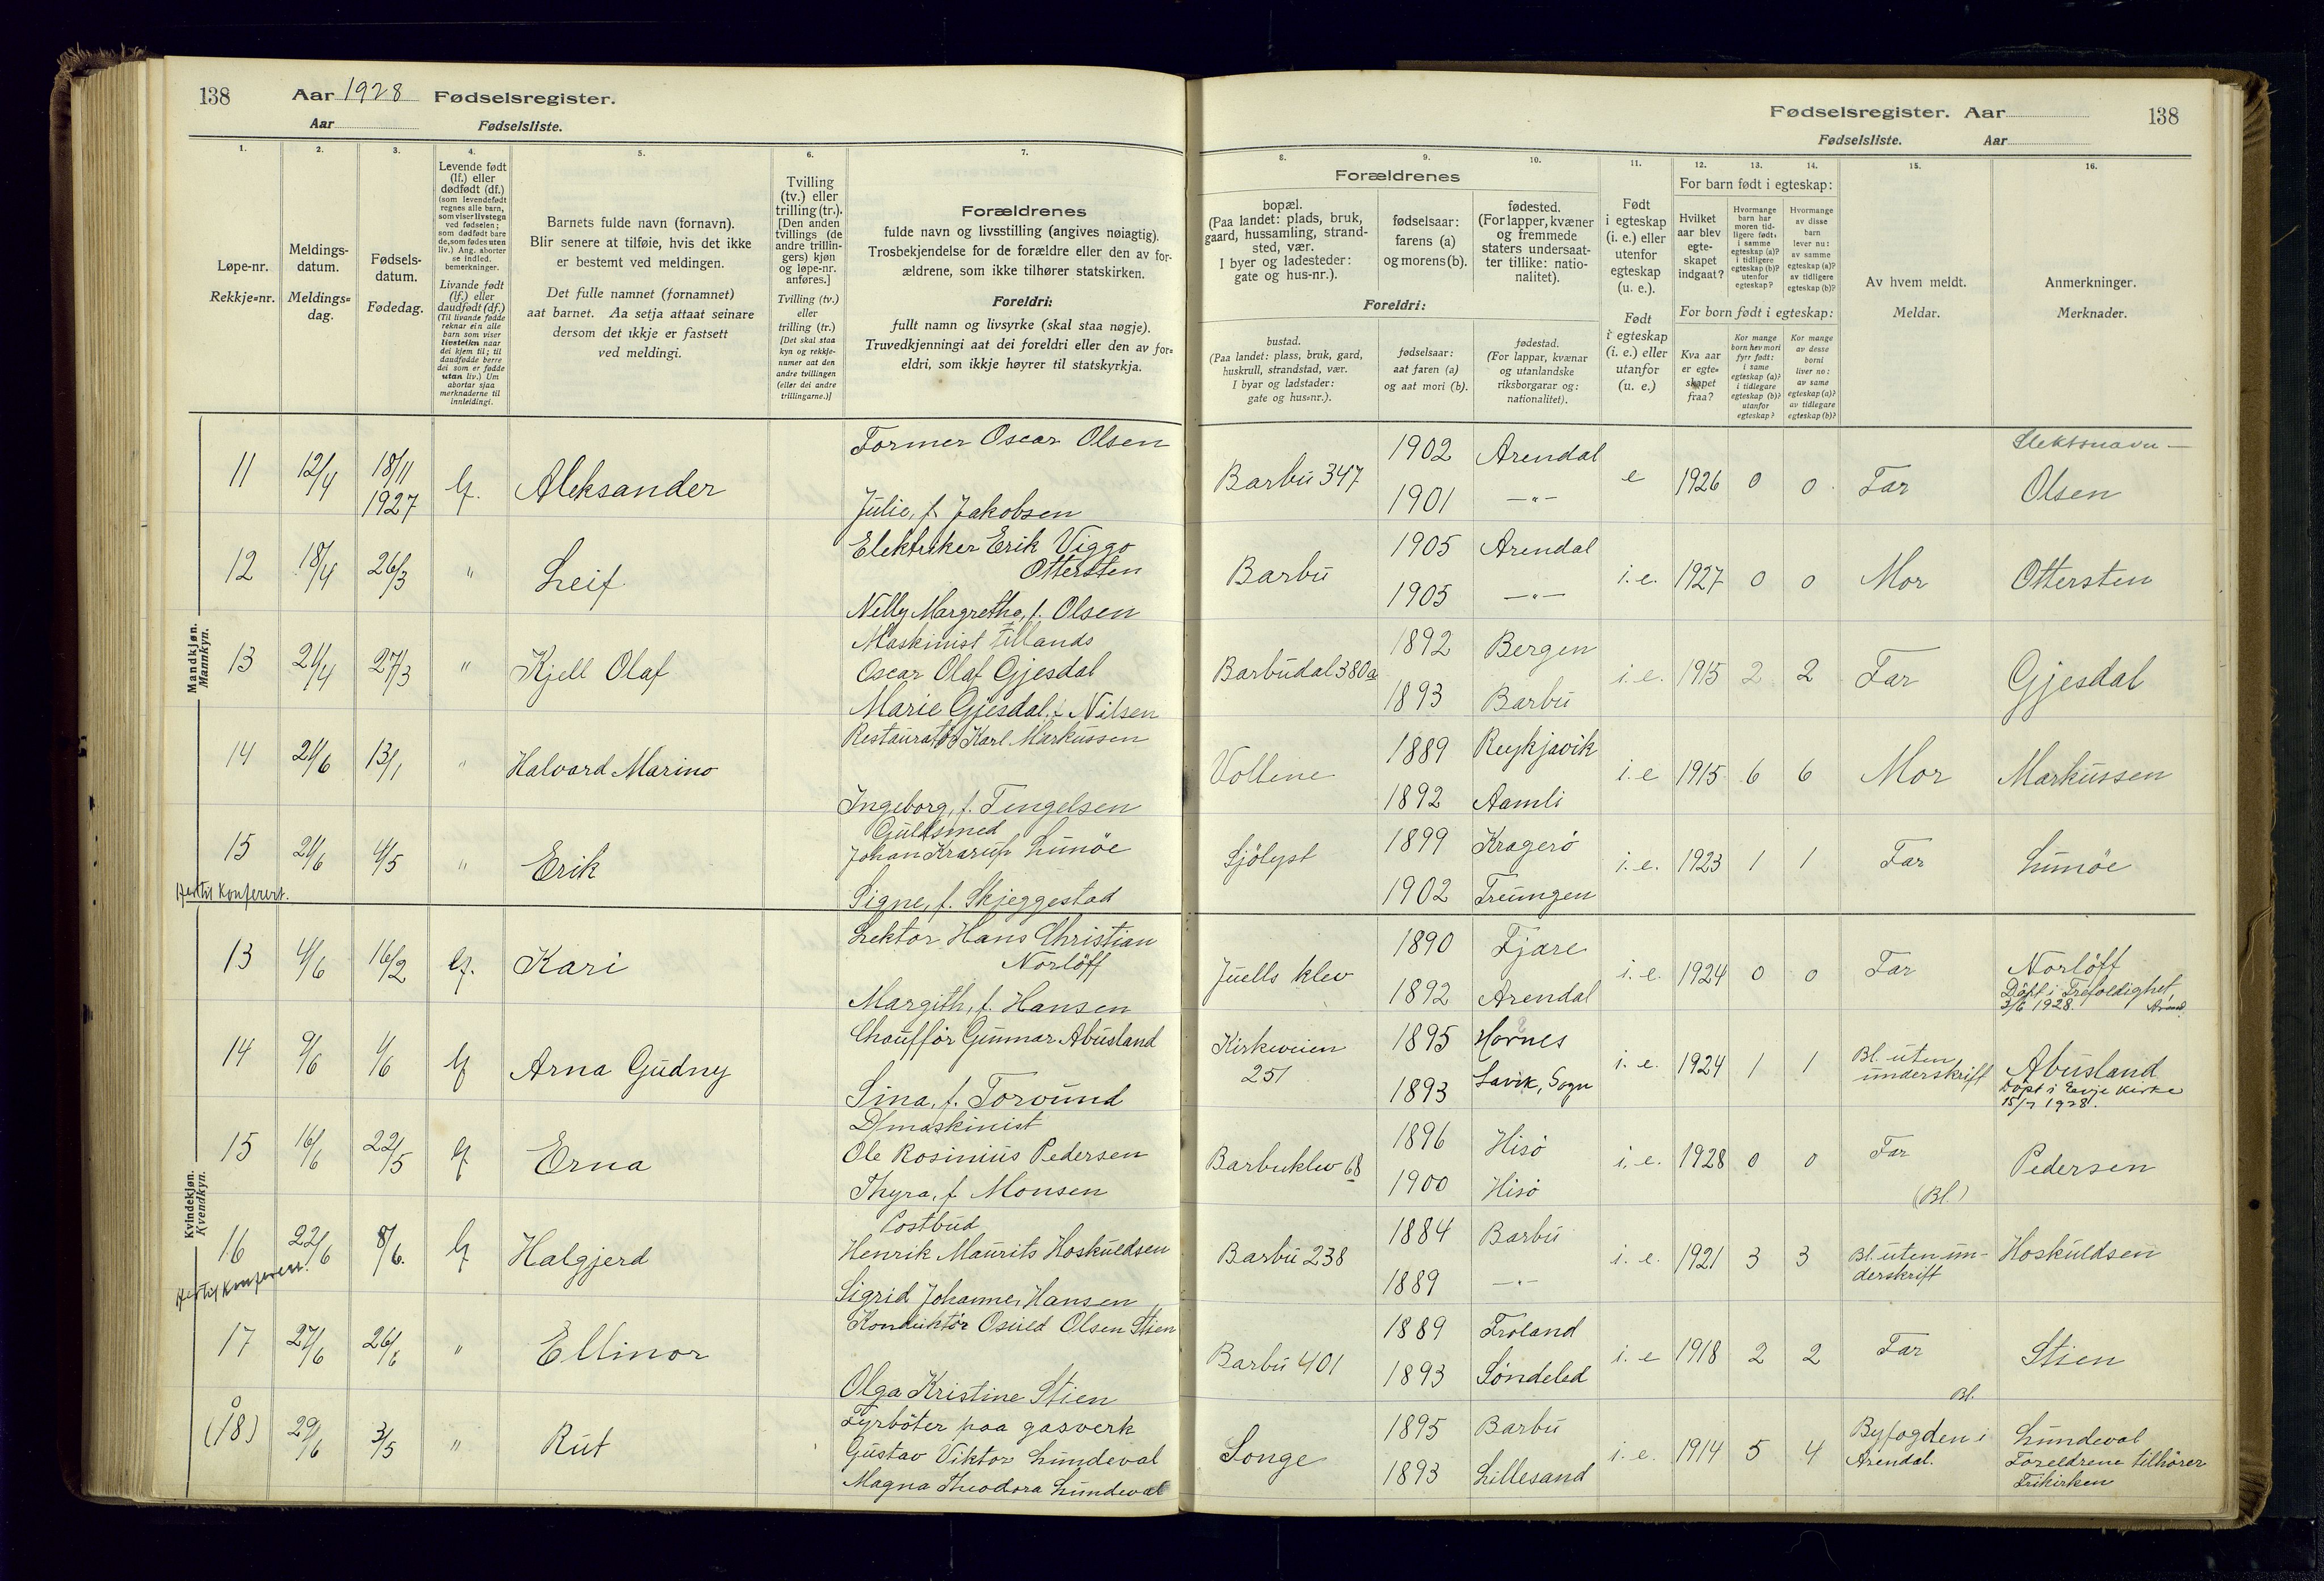 138 Aar 1928 Fødselsregister.
Aar Fødselsliste.
Fødselsregister. Aar 138
Fødselsliste. Aar
1. 2. 3. 4. 5. 6. 7. 8. 9. 10. 11. 12. 13. 14. 15. 16.
Løpe-nr.
Rekkje=nr.
Meldings-
datum.
Meldings=
dag.
Fødsels-
datum.
Fødedag.
Levende født
(lf.) eller
dødfødt (df.)
(som levendefødt
regnes alle barn,
som viser livstegn
ved fødselen;
som dødfødt bare
de, som fødes uten
liv.) Ang. aborter
se indled.
bemerkninger.
Livande født
(lf.) eller
daudfødt (df.)
(Til livande fødde
reknar ein alle
barn som viser
livsteikn naar
dei kjem til; til
daudfødde berre
dei som er fødde
utan liv.) Um
abortar sjaa
merknaderne til
innleidingi.
Barnets fulde navn (fornavn).
Blir senere at tilføie, hvis det ikke
er bestemt ved meldingen.
Det fulle namnet (fornamnet)
aat barnet. Aa setja attaat seinare
dersom det ikkje er fastsett
ved meldingi.
Tvilling
(tv.) eller
trilling (tr.).
[Den anden
tvillings (de
andre trillin-
gers) kjøn
og løpe-nr.
anføres.]
Tvilling (tv.)
eller
trilling (tr.)
[Det skal staa
kyn og rekkje-
numer aat den
andre tvillingen
(eller dei andre
trillingarne.)]
Forældrenes
fulde navn og livsstilling (angives nøiagtig).
Trosbekjendelse for de forældre eller den av for-
ældrene, som ikke tilhører statskirken.
Foreldri:
fullt namn og livsyrke (skal staa nøgje).
Truvedkjenningi aat dei foreldri eller den av for=
eldri, som ikkje høyrer til statskyrkja.
Forældrenes
bopæl.
(Paa landet: plads, bruk,
gaard, hussamling, strand-
sted, vær.
I byer og ladesteder:
gate og hus-nr.).
fødselsaar:
farens (a)
og morens (b).
fødested.
(For lapper, kvæner
og fremmede
staters undersaat-
ter tillike: natio-
nalitet).
Foreldri:
bustad.
(Paa landet: plass, bruk, gard,
huskrull, strandstad, vær.
I byar og ladstader:
gate og hus=nr.).
fødselsaar:
aat faren (a)
og aat mori (b).
fødestad.
(For lappar, kvænar
og utanlandske
riksborgarar og:
nationalitet).
Født
i egteskap
(i. e.) eller
utenfor
egteskap
(u. e.).
Født
i egteskap
(i. e.) eller
utanfor
(u. e.)
For barn født i egteskap:
Hvilket
aar blev
egte-
skapet
indgaat?
Hvormange
barn har
moren tid-
ligere født:
i samme
egteskap (a)?
i tidligere
egteskap (b)?
utenfor
egteskap?
Hvormange
av disse
barn
lever nu:
av samme
egteskap (a)?
av tidligere
egteskap (b)?
For born født i egteskap:
Kva aar
er egte=
skapet
fraa?
Kor mange
born hev mori
fyrr født:
i same
egteskap (a)?
i tidlegare
egteskap (b)?
utanfor
egteskap?
Kor mange
av desse
borni
liver no:
av same
egteskap (a)?
av tidlegare
egteskap (b)?
Av hvem meldt.
Meldar.
Anmerkninger.
Merknader.
Mandkjøn.
Mannkyn.
Slektsnavn
11 12/4 18/11 1927 lf. Aleksander
Former Oscar Olsen
Julie, f. Jakobsen
Barbu 347 1902 Arendal
1901 —"—
e 1926 0 0 Far Olsen
12 18/4 26/3 " Leif
Elektriker Erik Viggo
Ottersten
Nelly Margrethe, f. Olsen
Barbu 1905 Arendal
1905 —"—
i. e. 1927 0 0 Mor Ottersten
13 21/4 27/3 " Kjell Olaf
Maskinist tillands
Oscar Olaf Gjesdal
Marie Gjesdal, f. Nilsen
Barbudal 380a 1892 Bergen
1893 Barbu
i. e. 1915 2 2 Far Gjesdal
14 21/6 13/1 " Halvard Marino
Restauratør Karl Markussen
Ingeborg, f. Tengelsen
Vollene 1889 Reykjavik
1892 Aamli
i. e 1915 6 6 Mor Markussen
15 21/6 4/5 " Erik
Guldsmed
Johan Krarup Lunöe
Signe, f. Skjeggestad
Sjölyst 1899 Kragerö
1902 Treungen
i. e. 1923 1 1 Far Lunöe
Hertil konferert.
Kvindekjøn.
Kvendkyn.
13 4/6 16/2 lf. Kari
Lektor Hans Christian
Norlöff
Margith, f. Hansen
Juells klev 1890 Fjære
1892 Arendal
i. e. 1924 0 0 Far Norlöff
Döpt i Trefoldighet
3/6 1928. Arend.
14 9/6 1/6 lf Arna Gudny
Chauffør Gunnar Abusland
Sina, f. Torvund
Kirkeveien
251
1895 Hornes
1893 Lavik, Sogn
i. e. 1924 1 1 Bl. uten
underskrift
Abusland
Döpt i Evje kirke
15/7 1928.
15 16/6 22/5 lf Erna
D/maskinist
Ole Rosinius Pedersen
Thyra, f. Monsen
Barbuklev 68 1896 Hisö
1900 Hisö
i. e. 1928 0 0 Far
(Bl.)
Pedersen
16 22/6 8/6. lf Halgjerd
Postbud
Henrik Maurits Hoskuldsen
Sigrid Johanne, Hansen
Barbu 238 1884 Barbu
1889 —"—
i. e. 1921 3 3 Bl. uten un-
derskrift
Hoskuldsen
Hertil konferert.
17 27/6 26/6 " Ellinor
Konduktör Osuld Olsen Stien
Olga Kristine Stien
Barbu 401 1889 Froland
1893 Söndeled
i. e 1918 2 2 Far
Bl.
Stien
(18) 29/6 3/5 " Rut
Fyrböter paa gasverk
Gustav Viktor Lundeval
Magna Theodora Lundeval
Songe 1895 Barbu
1893 Lillesand
i. e. 1914 5 4 Byfogden i
Arendal.
Lundeval
Foreldrene tilhörer
Frikirken